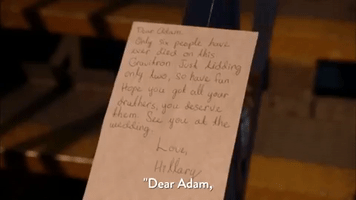 Dear Adam,
Only six people have
ever died on this
Gravitron. Just kidding
only two, so have fun
Hope you got all your
druthers, you deserve
them. See you at the
wedding.
Love,
Hillary
"Dear Adam,